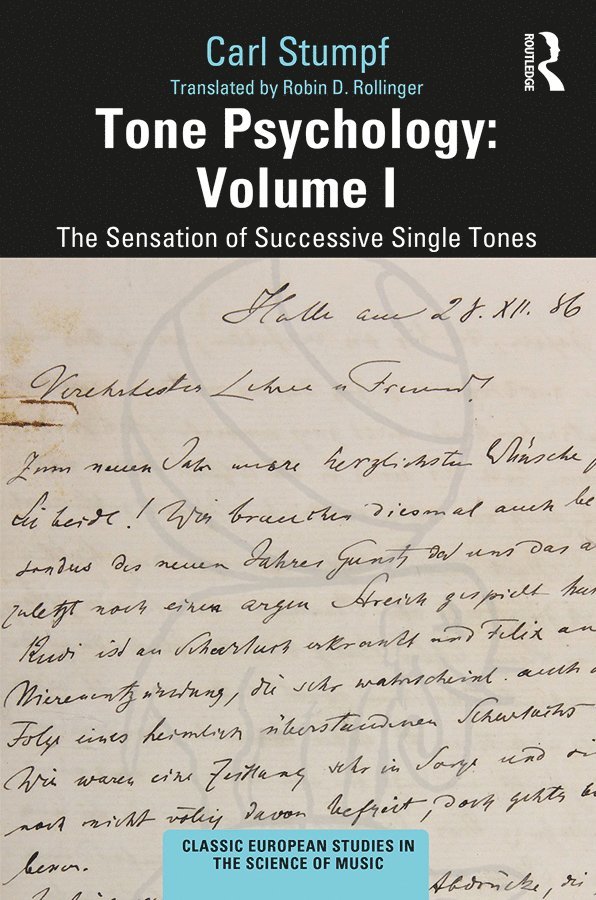 Carl Stumpf
ROUTLEDGE
Translated by Robin D. Rollinger
Tone Psychology:
Volume I
The Sensation of Successive Single Tones
Halle am 28. XII. 86
Verehrtester Lehrer u Freund!
Zum neuen Jahr unsere herzlichsten Wünsche f
Sie beide! Wir brauchen diesmal auch be
sondres des neuen Jahres Gunst, da uns das a
zuletzt noch einen argen Streich gespielt hat
Rudi ist an Scharlach erkrankt und Felix an
Nierenentzündung, die sehr wahrscheinl. auch
Folge eines heimlich überstandenen Scharlachs
Wir waren eine Zeitlang sehr in Sorge und
noch nicht völlig davon befreit, doch gehts
besser.
CLASSIC EUROPEAN STUDIES IN
THE SCIENCE OF MUSIC
Abdrücke, die